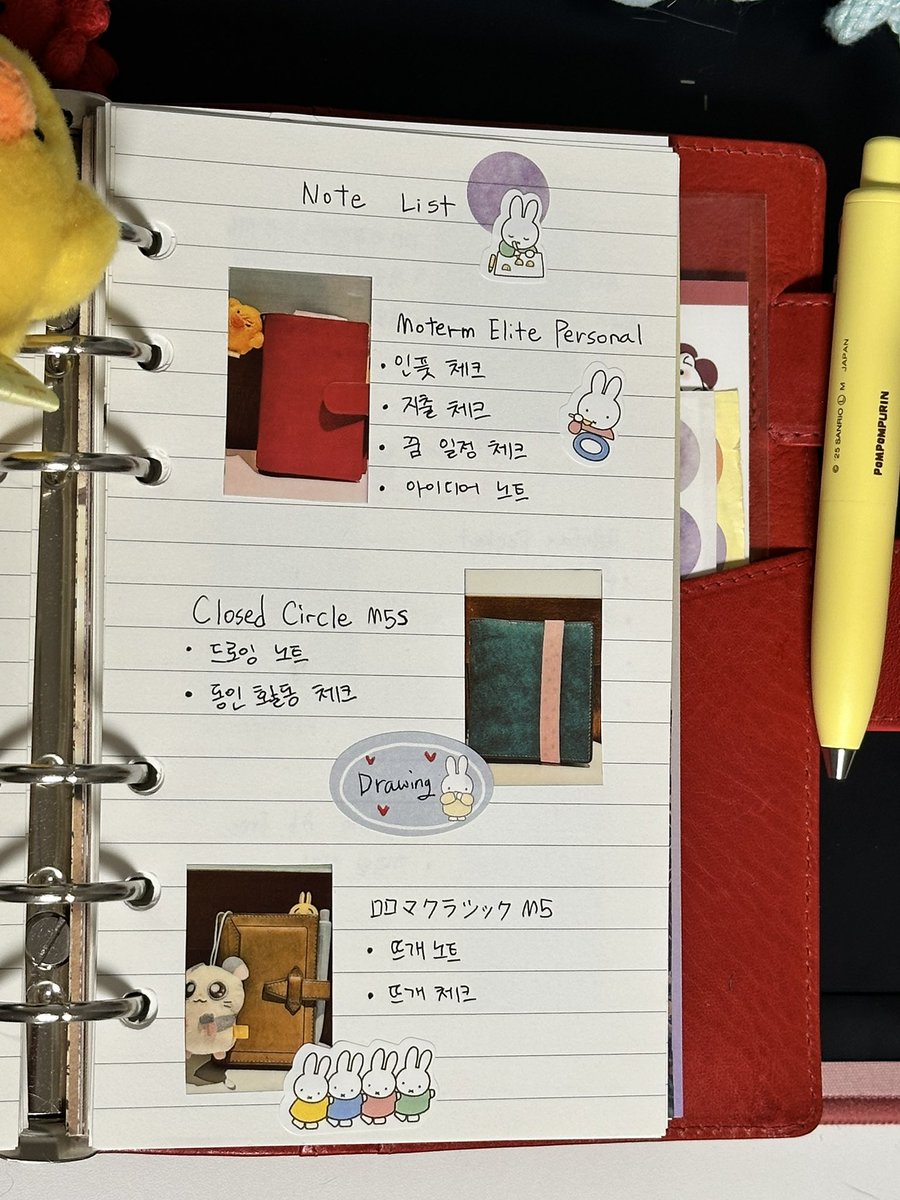 Note List
Moterm Elite Personal
• 인풋 체크
• 지출 체크
• 꿈 일정 체크
• 아이디어 노트
Closed Circle M5s
• 드로잉 노트
• 동인 활동 체크
Drawing
ロロマクラシック M5
• 뜨개 노트
• 뜨개 체크
© '25 SANRIO Ⓛ M JAPAN
POMPOMPURIN